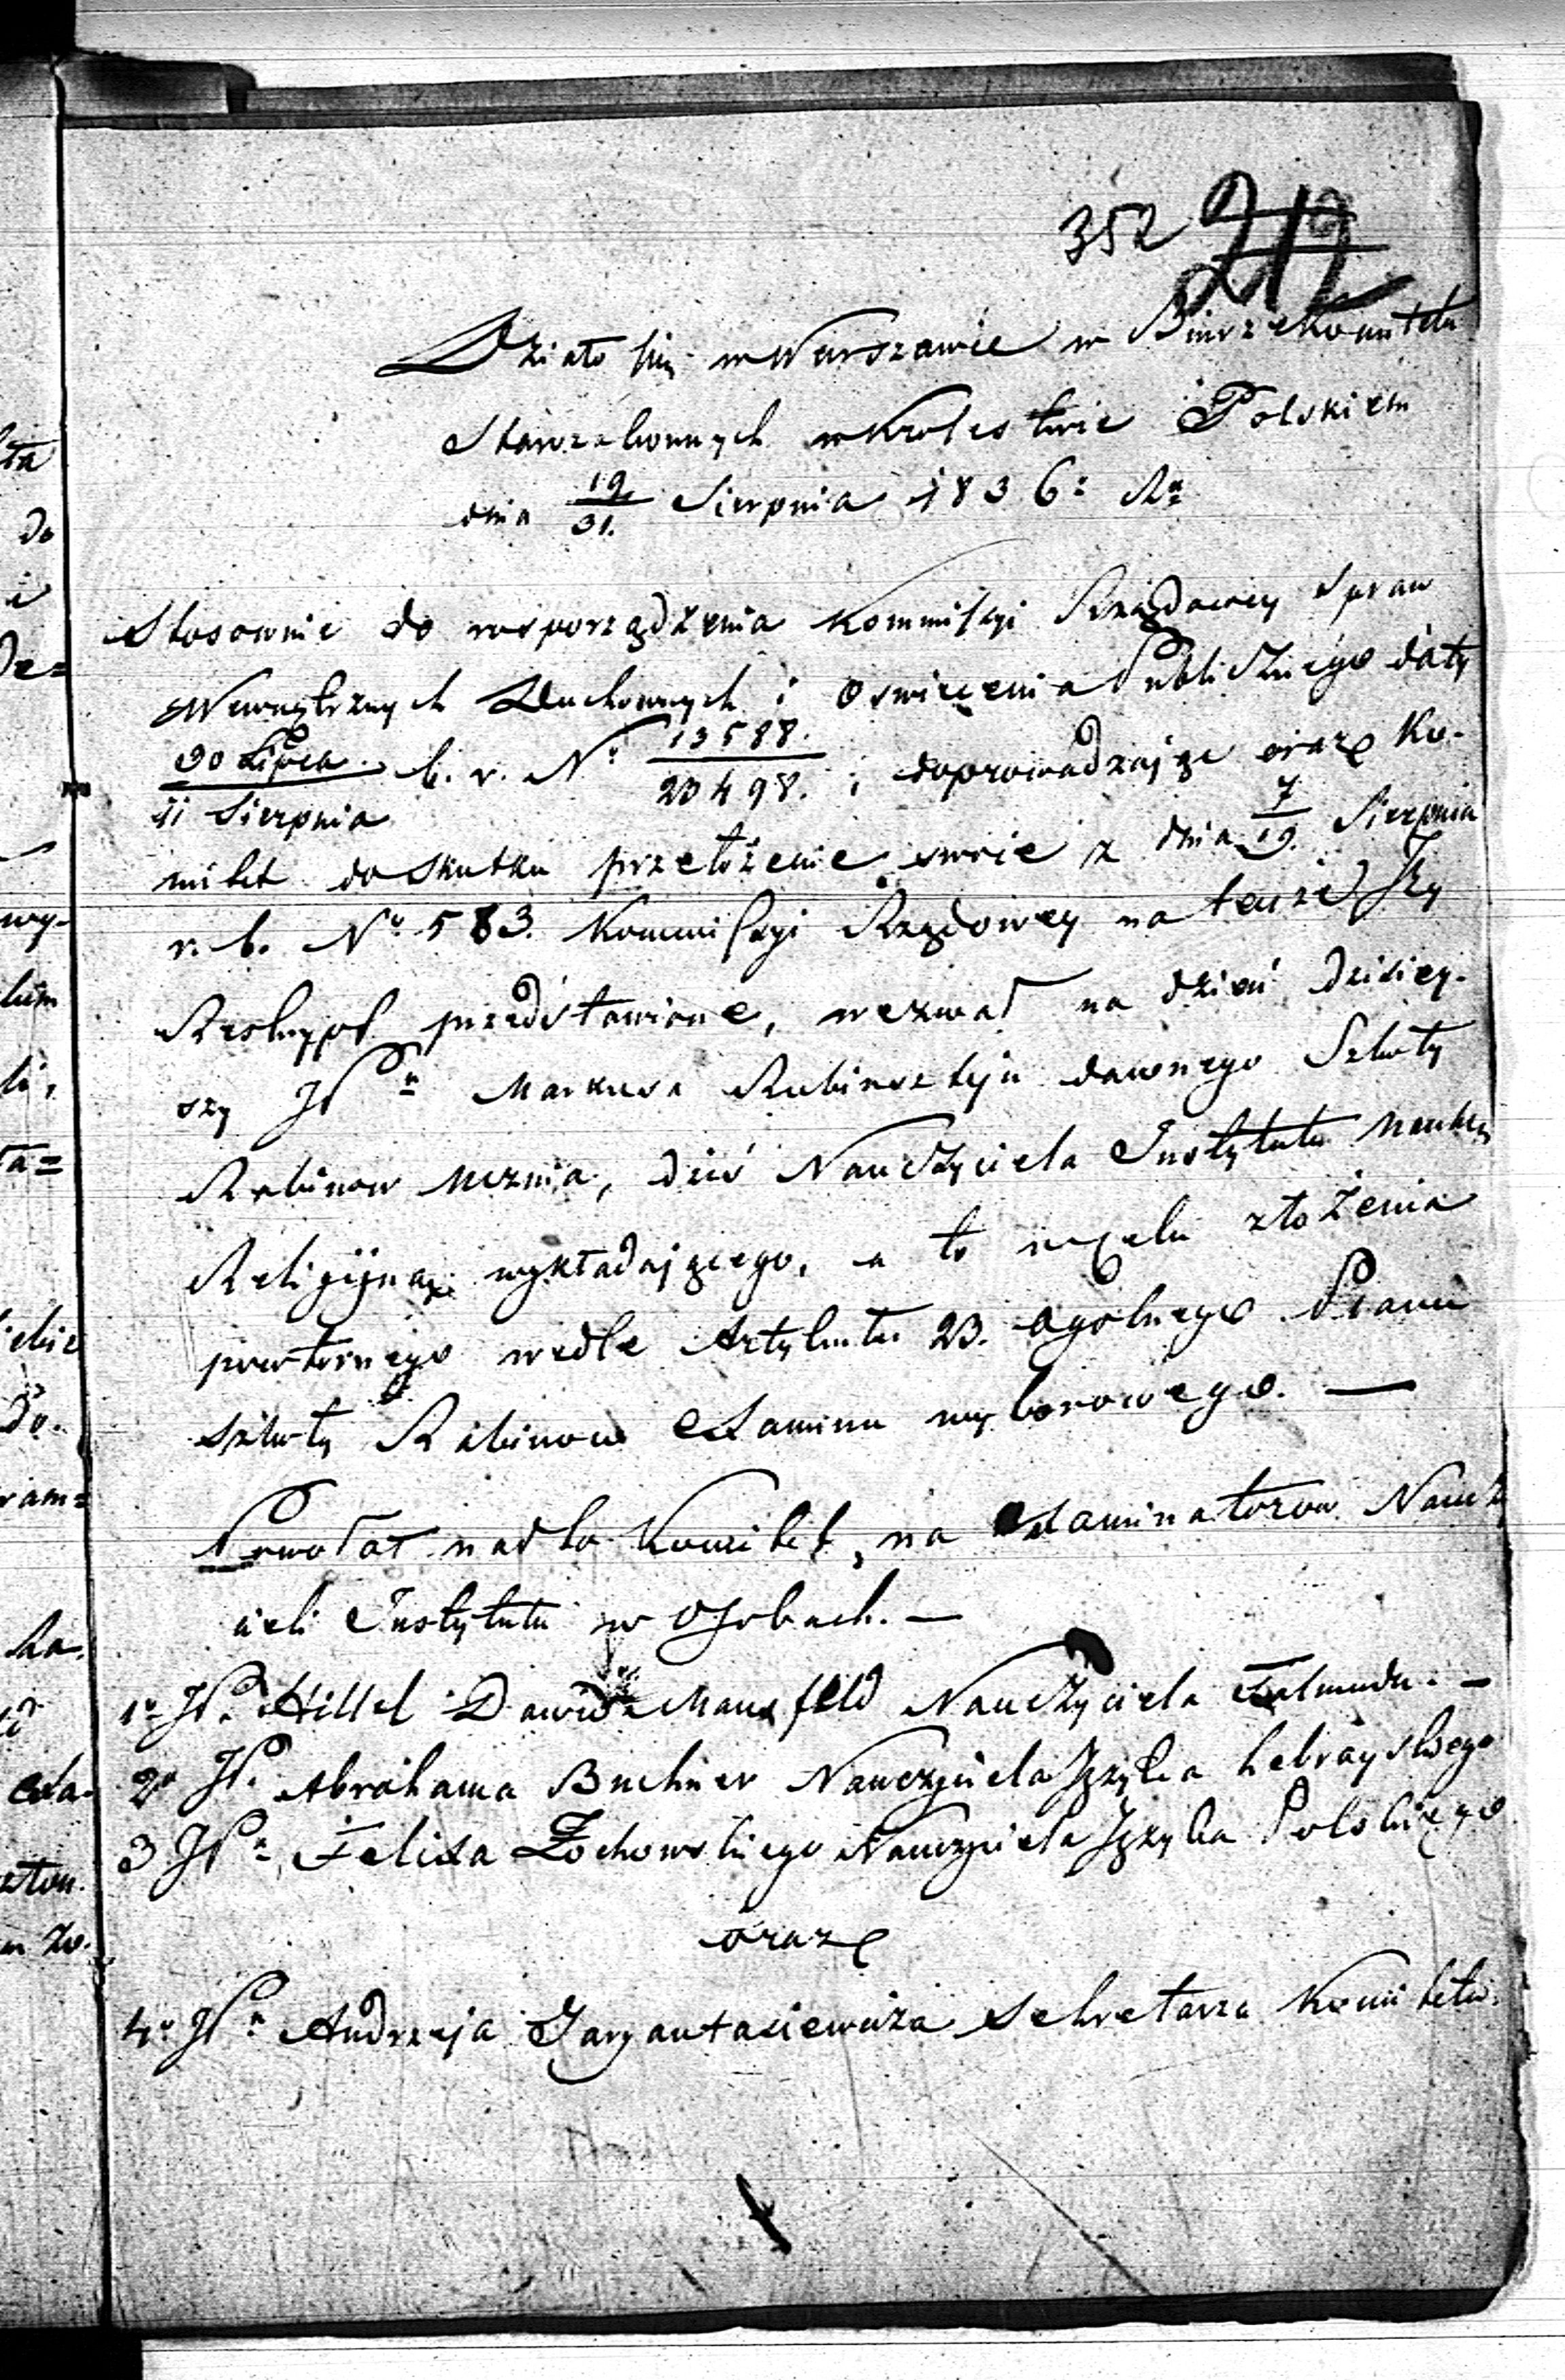 352 212
Działo się w Warszawie w Biurze Komitetu
Starozakonnych w Krolestwie Polskiem
dnia 19/31. Sierpnia 1836: Ru
Stosownie do rosporządzenia Kommissyi Rządowey Spraw
Wewnętrznych Duchownych i Oswiecenia Publicznego daty
30 Lipca / 11 Sierpnia b. r. No 13588. / 23498. i doprowadzaiąc oraz Ko-
mitet do skutku przełożenie swoie z dnia 7/19. Sierpnia
r. b. No 583. Kommissyi Rządowey na tenże Jey
Reskrypt przedstawione, wezwał na dzień dzisiey-
szy JPn Markusa Rubinsztejn dawnego Szkoły
Rabinow ucznia, dziś Nauczyciela Instytutu naukę
Religijną wykładaiącego, a to w celu złożenia
powtornego wedle Artykułu 23. ogolnego Planu
Szkoły Rabinow examinu wyborowego. —
Powołał nadto Komitet, na examinatorow Nauczy
cieli Instytutu w osobach. —
1o JP. Hillel Dawida Mansfeld Nauczyciela Talmudu. —
2o JP. Abrahama Buchner Nauczyciela Języka hebrayskiego
3 JPn Felixa Żochowskiego Nauczyciela Języka Polskiego
oraz
4o JPn Andrzeja Sekretarza Komitetu.
ta
do
i
de=
wy-
ta=
do.
xa-